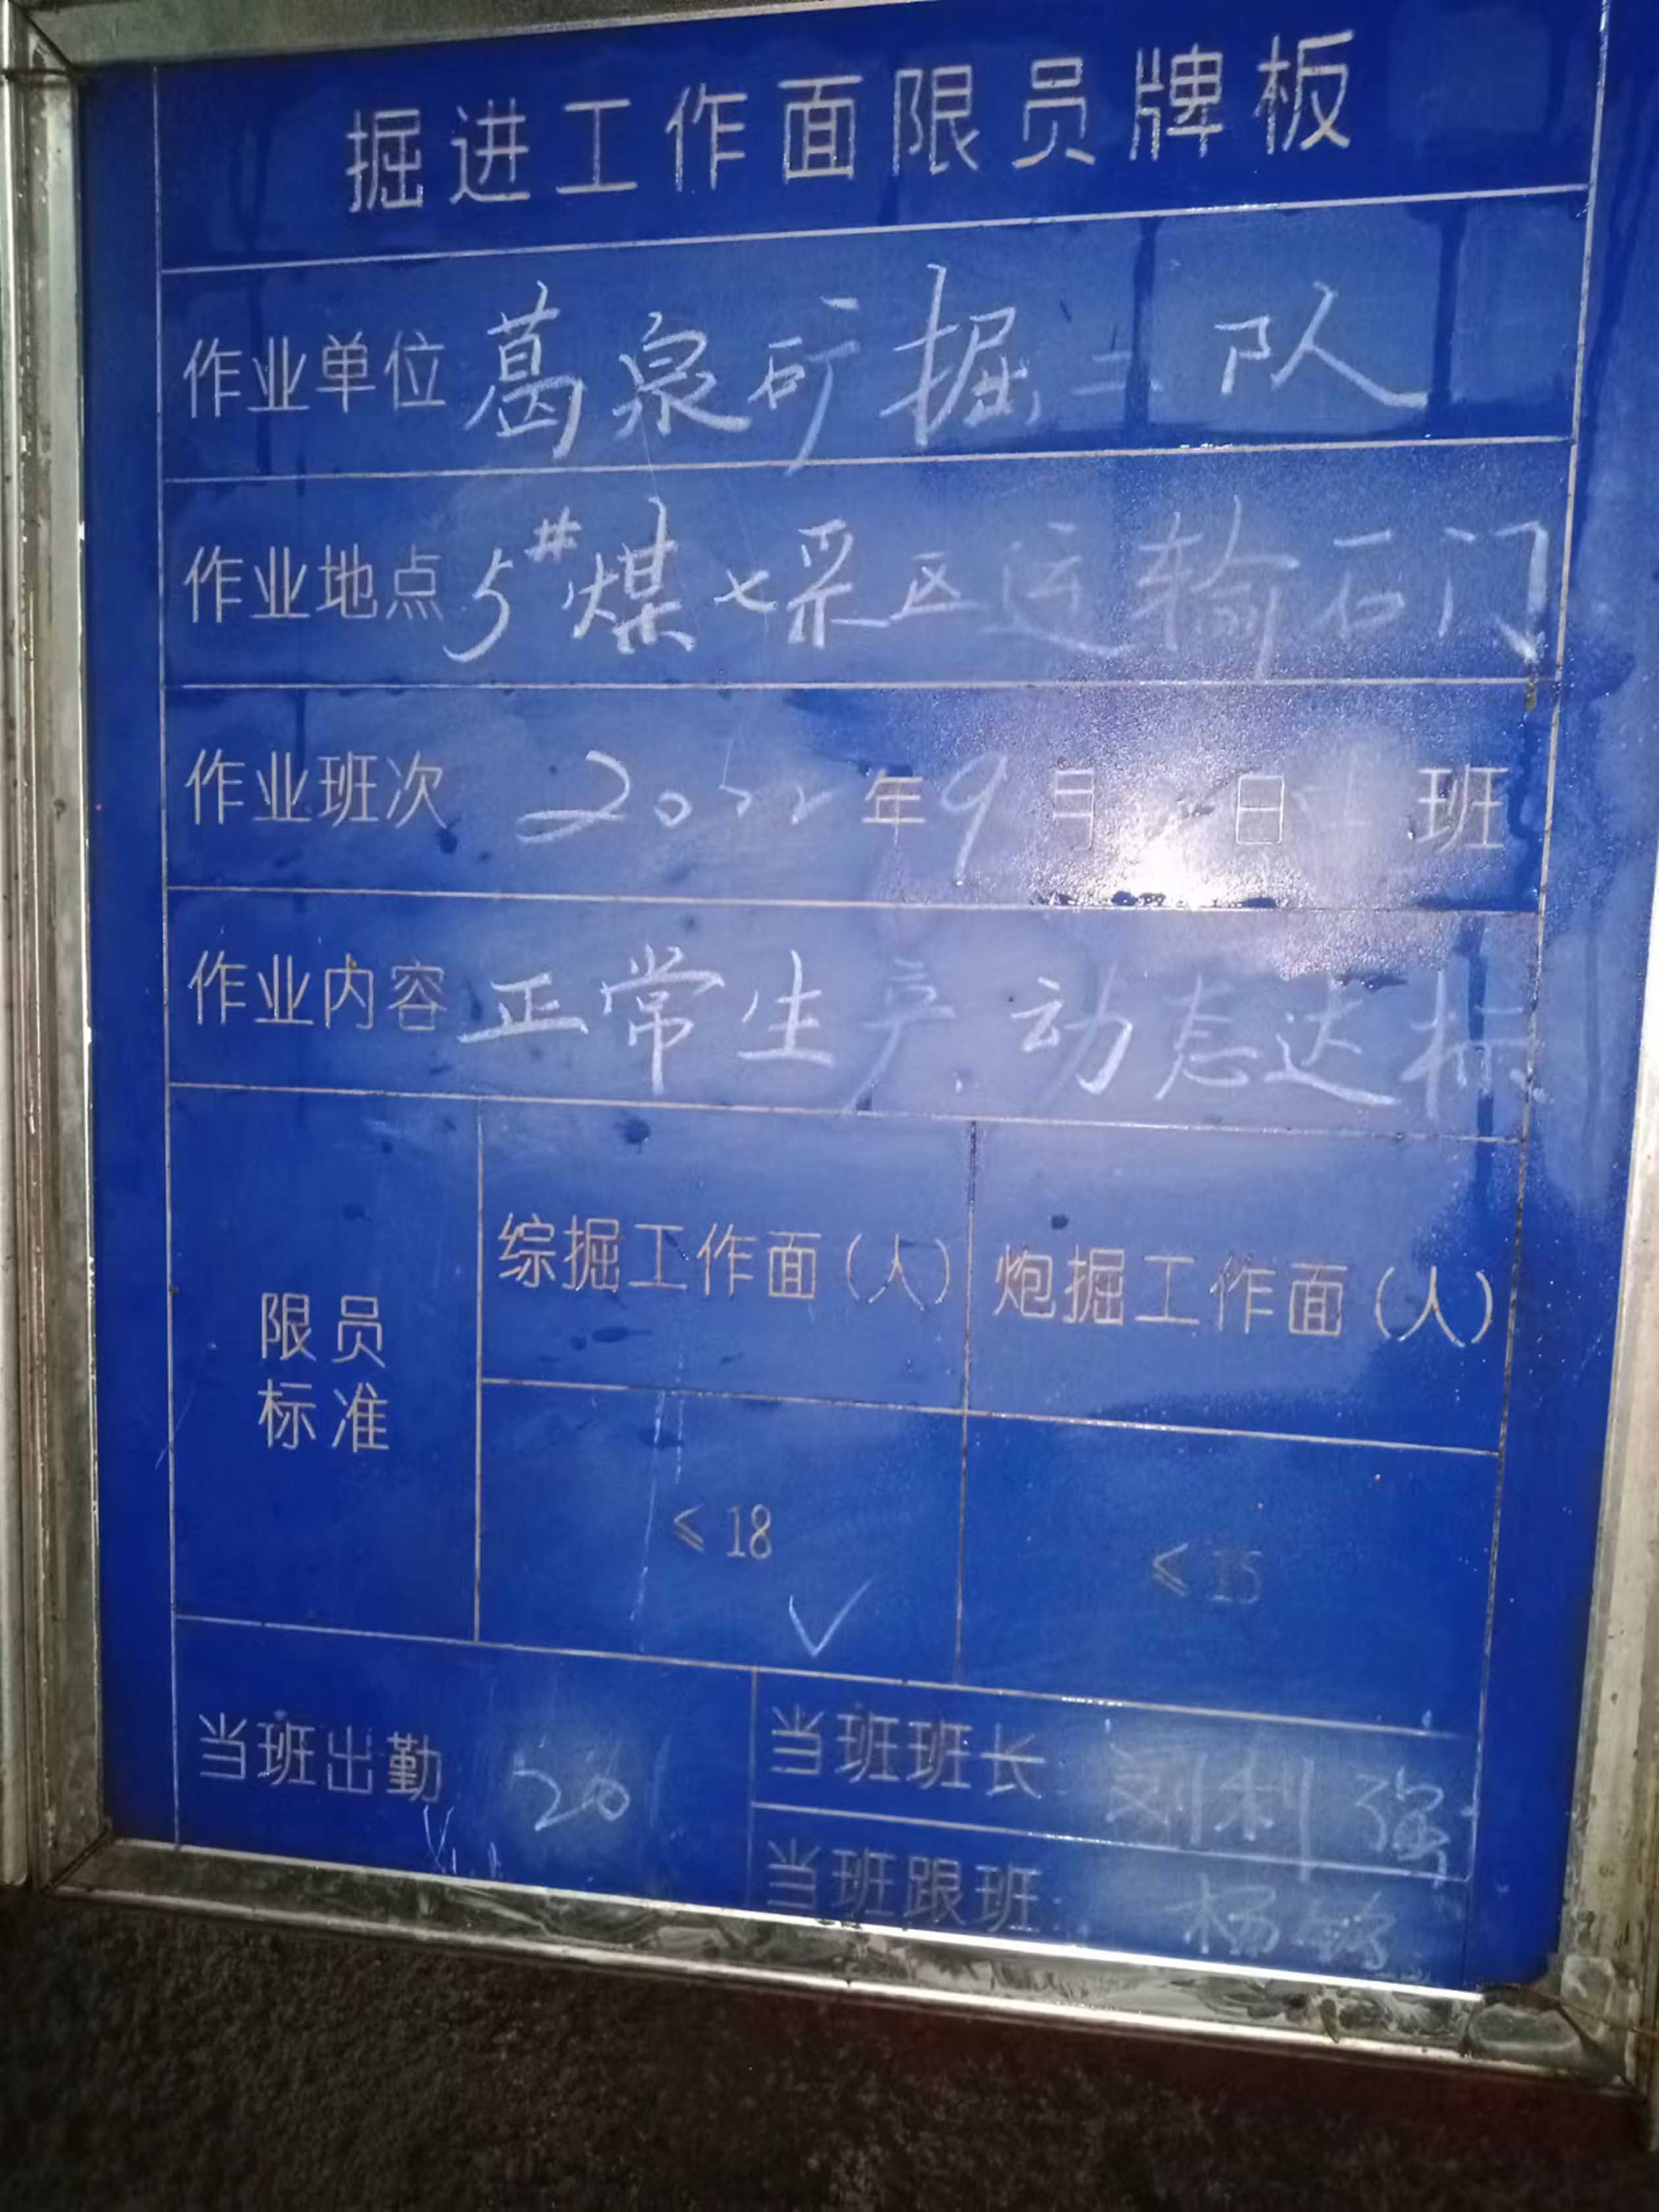 掘进工作面限员牌板
作业单位 葛泉矿掘二队
作业地点 5#煤七采区运输石门
作业班次 2022年9月 日 班
作业内容 正常生产、动态达标
限员标准
综掘工作面(人) 炮掘工作面(人)
≤18 ≤15
√
当班出勤 20
当班班长 刘利强
当班跟班 杨